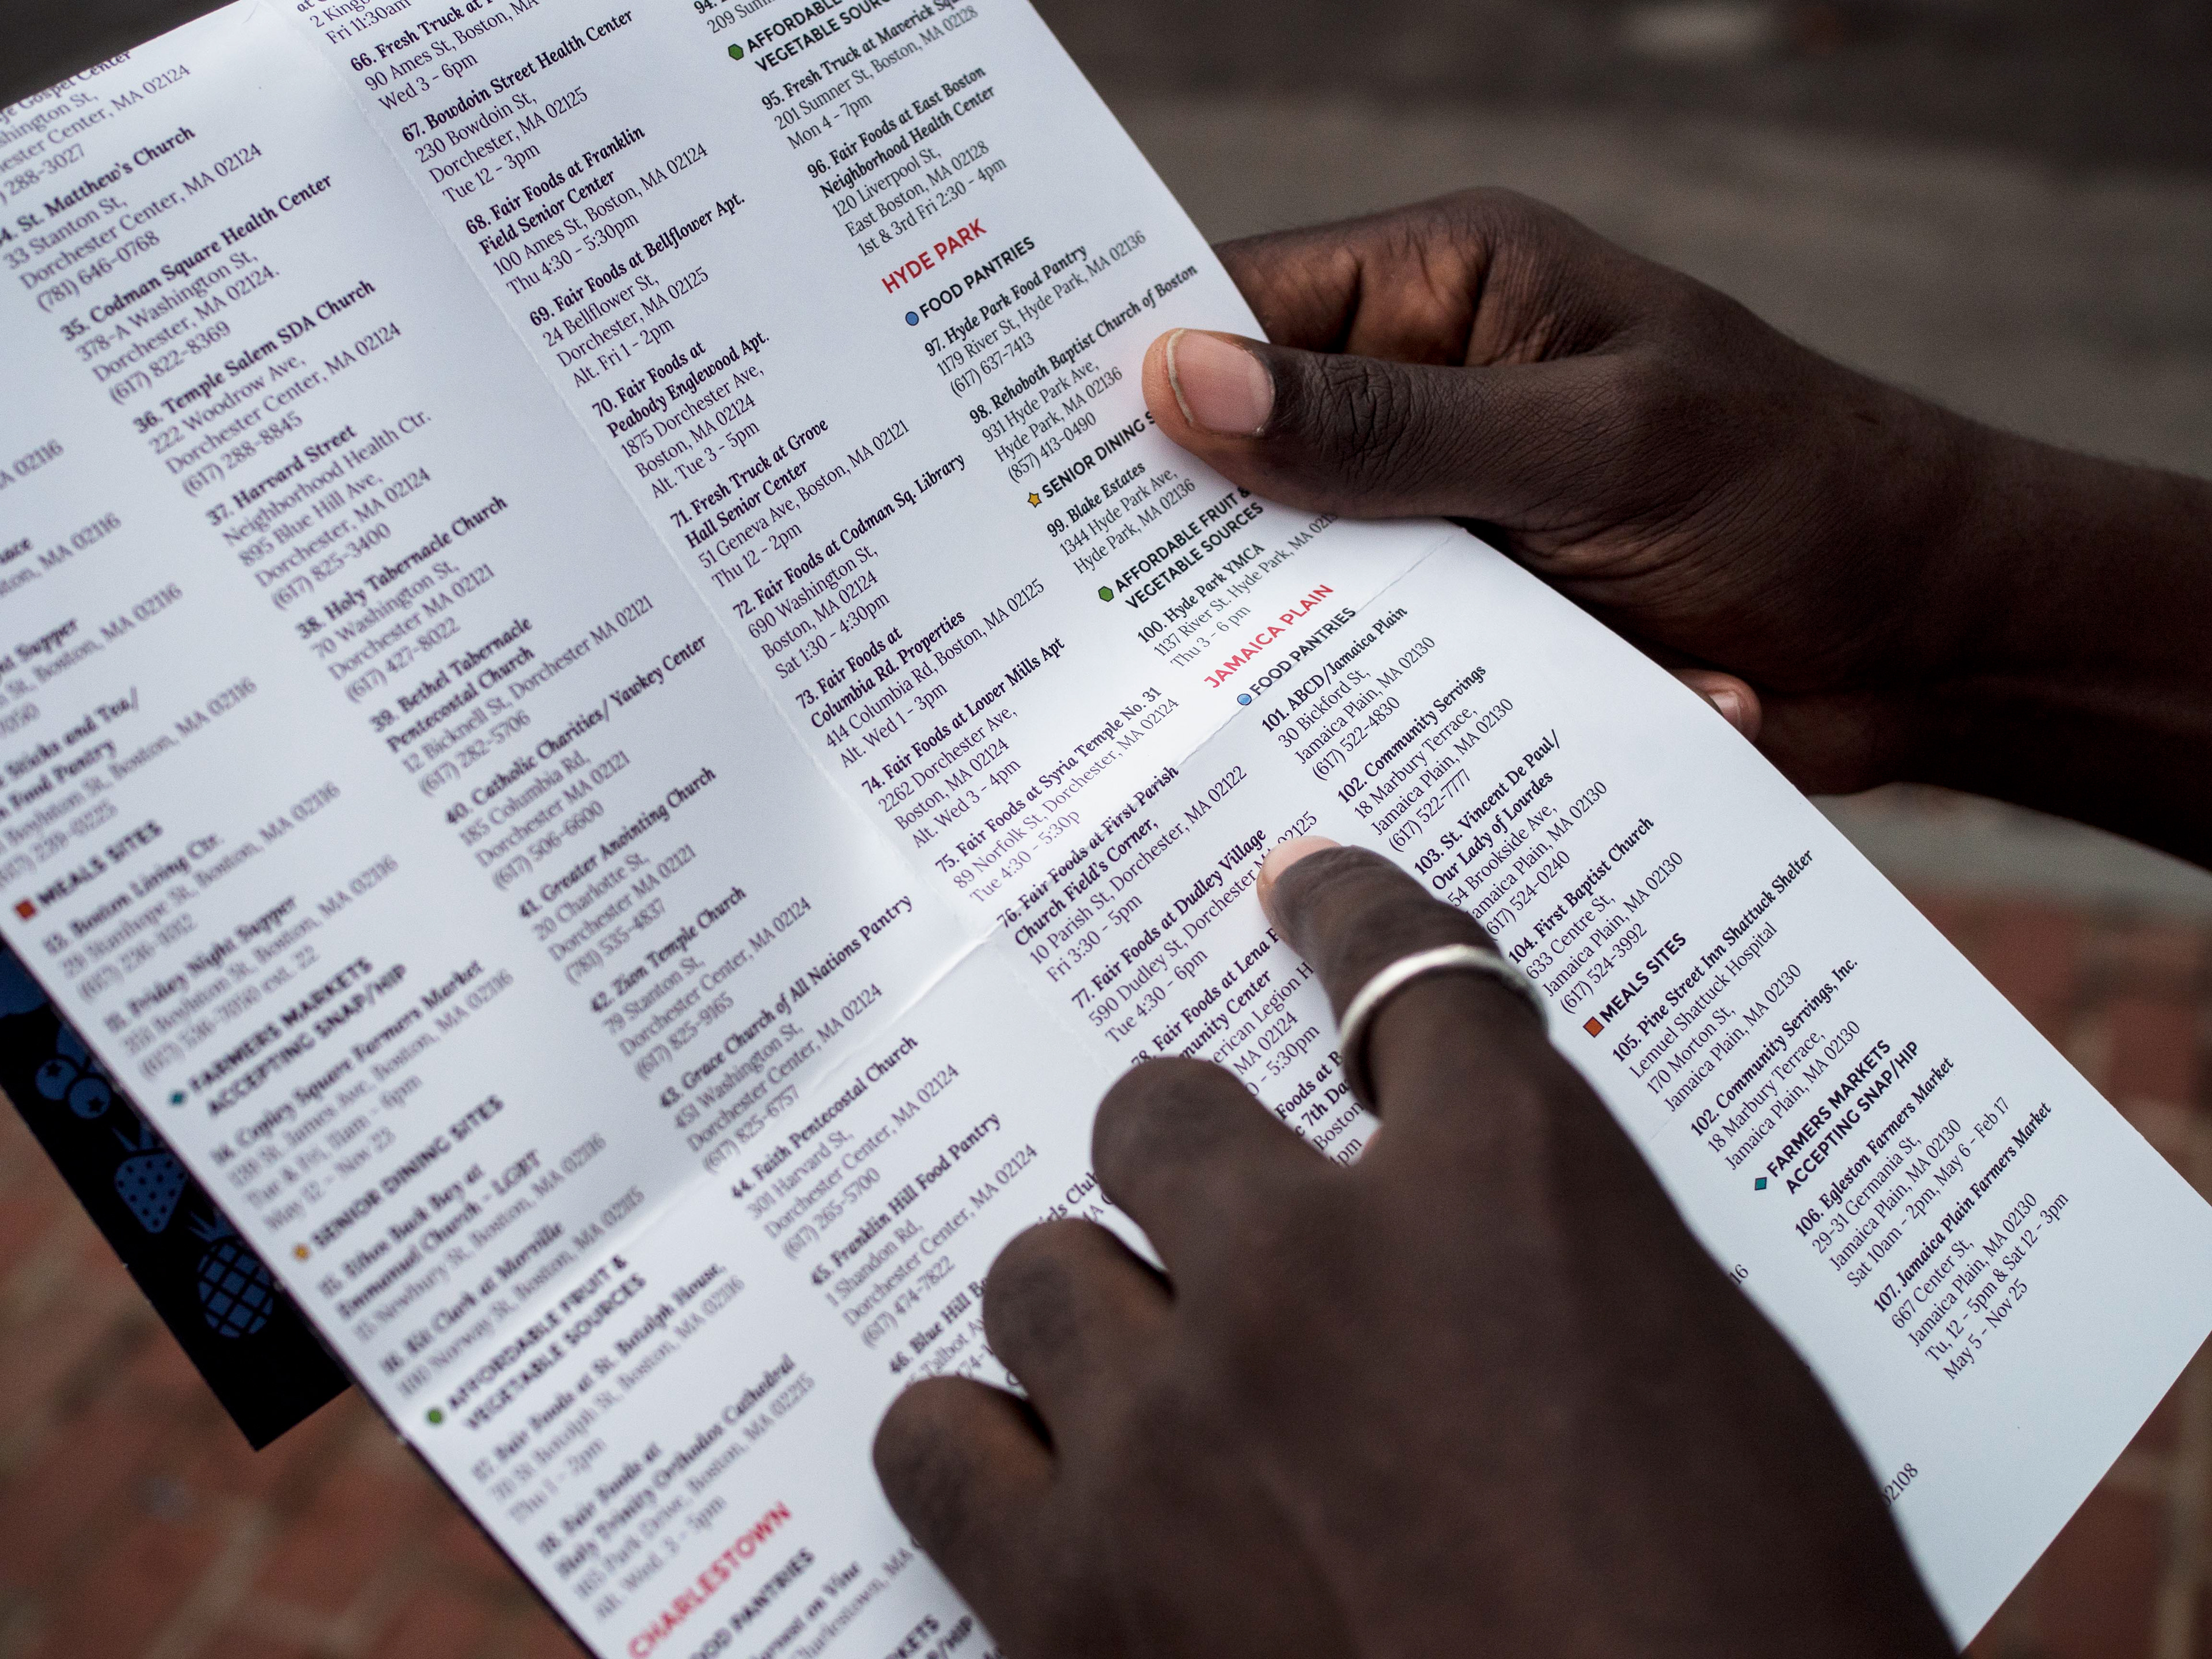 Gospel Center
shington St,
ester Center, MA 02124
288-3027
34. St. Matthew's Church
33 Stanton St,
Dorchester Center, MA 02124
(781) 646-0768
35. Codman Square Health Center
378-A Washington St,
Dorchester, MA 02124.
(617) 822-8369
36. Temple Salem SDA Church
222 Woodrow Ave,
Dorchester Center, MA 02124
(617) 288-8845
37. Harvard Street
Neighborhood Health Ctr.
895 Blue Hill Ave,
Dorchester, MA 02124
(617) 825-3400
38. Holy Tabernacle Church
70 Washington St,
Dorchester MA 02121
(617) 427-8022
39. Bethel Tabernacle
Pentecostal Church
12 Bicknell St, Dorchester MA 02121
(617) 282-5706
40. Catholic Charities/ Yawkey Center
185 Columbia Rd,
Dorchester MA 02121
(617) 506-6600
41. Greater Anointing Church
20 Charlotte St,
Dorchester MA 02121
(781) 535-4837
42. Zion Temple Church
79 Stanton St,
Dorchester Center, MA 02124
(617) 825-9165
43. Grace Church of All Nations Pantry
451 Washington St,
Dorchester Center, MA 02124
(617) 825-6757
44. Faith Pentecostal Church
301 Harvard St,
Dorchester Center, MA 02124
(617) 265-5700
45. Franklin Hill Food Pantry
1 Shandon Rd,
Dorchester Center, MA 02124
(617) 474-7822
46. Blue Hill
Talbot
MA 02116
Boston, MA 02116
Supper
St, Boston, MA 02116
Sticks and Tea/
Food Pantry
Boylston St, Boston, MA 02116
(617) 239-0225
MEALS SITES
Boston Living Ctr.
29 Stanhope St, Boston, MA 02116
(617) 236-1012
Friday Night Supper
351 Boylston St, Boston, MA 02116
(617) 536-7050 ext. 22
FARMERS MARKETS
ACCEPTING SNAP/HIP
Copley Square Farmers Market
139 St. James Ave, Boston, MA 02116
Tue & Fri, 11am - 6pm
May 12 - Nov 23
SENIOR DINING SITES
Ethos Back Bay at
Emmanuel Church - LGBT
15 Newbury St, Boston, MA 02116
Kit Clark at Morville
100 Norway St, Boston, MA 02115
AFFORDABLE FRUIT &
VEGETABLE SOURCES
Fair Foods at St. Botolph House,
70 St Botolph St, Boston, MA 02116
Thu 1 - 2pm
Fair Foods at
Holy Trinity Orthodox Cathedral
165 Park Drive, Boston, MA 02215
Alt. Wed, 3 - 5pm
CHARLESTOWN
FOOD PANTRIES
on Vine
Charlestown, MA
2 Kings
Fri 11:30am
66. Fresh Truck at
90 Ames St, Boston, MA
Wed 3 - 6pm
67. Bowdoin Street Health Center
230 Bowdoin St,
Dorchester, MA 02125
Tue 12 - 3pm
68. Fair Foods at Franklin
Field Senior Center
100 Ames St, Boston, MA 02124
Thu 4:30 - 5:30pm
69. Fair Foods at Bellflower Apt.
24 Bellflower St,
Dorchester, MA 02125
Alt. Fri 1 - 2pm
70. Fair Foods at
Peabody Englewood Apt.
1875 Dorchester Ave,
Boston, MA 02124
Alt. Tue 3 - 5pm
71. Fresh Truck at Grove
Hall Senior Center
51 Geneva Ave, Boston, MA 02121
Thu 12 - 2pm
72. Fair Foods at Codman Sq. Library
690 Washington St,
Boston, MA 02124
Sat 1:30 - 4:30pm
73. Fair Foods at
Columbia Rd. Properties
414 Columbia Rd, Boston, MA 02125
Alt. Wed 1 - 3pm
74. Fair Foods at Lower Mills Apt
2262 Dorchester Ave,
Boston, MA 02124
Alt. Wed 3 - 4pm
75. Fair Foods at Syria Temple No. 31
89 Norfolk St, Dorchester, MA 02124
Tue 4:30 - 5:30p
76. Fair Foods at First Parish
Church Field's Corner,
10 Parish St, Dorchester, MA 02122
Fri 3:30 - 5pm
77. Fair Foods at Dudley Village
590 Dudley St, Dorchester MA 02125
Tue 4:30 - 6pm
78. Fair Foods at Lena
munity Center
erican Legion H
MA 02124
- 5:30pm
Foods at B
7th Da
Boston
pm
ids Club
94.
209 Sumn
AFFORDABLE
VEGETABLE SOURC
95. Fresh Truck at Maverick Squ
201 Sumner St, Boston, MA 02128
Mon 4 - 7pm
96. Fair Foods at East Boston
Neighborhood Health Center
120 Liverpool St,
East Boston, MA 02128
1st & 3rd Fri 2:30 - 4pm
HYDE PARK
FOOD PANTRIES
97. Hyde Park Food Pantry
1179 River St, Hyde Park, MA 02136
(617) 637-7413
98. Rehoboth Baptist Church of Boston
931 Hyde Park Ave,
Hyde Park, MA 02136
(857) 413-0490
SENIOR DINING S
99. Blake Estates
1344 Hyde Park Ave,
Hyde Park, MA 02136
AFFORDABLE FRUIT &
VEGETABLE SOURCES
100. Hyde Park YMCA
1137 River St. Hyde Park, MA 0213
Thu 3 - 6 pm
JAMAICA PLAIN
FOOD PANTRIES
101. ABCD/Jamaica Plain
30 Bickford St,
Jamaica Plain, MA 02130
(617) 522-4830
102. Community Servings
18 Marbury Terrace,
Jamaica Plain, MA 02130
(617) 522-7777
103. St. Vincent De Paul/
Our Lady of Lourdes
54 Brookside Ave,
Jamaica Plain, MA 02130
(617) 524-0240
104. First Baptist Church
633 Centre St,
Jamaica Plain, MA 02130
(617) 524-3992
MEALS SITES
105. Pine Street Inn Shattuck Shelter
Lemuel Shattuck Hospital
170 Morton St,
Jamaica Plain, MA 02130
102. Community Servings, Inc.
18 Marbury Terrace,
Jamaica Plain, MA 02130
FARMERS MARKETS
ACCEPTING SNAP/HIP
106. Egleston Farmers Market
29-31 Germania St,
Jamaica Plain, MA 02130
Sat 10am - 2pm, May 6 - Feb 17
107. Jamaica Plain Farmers Market
667 Center St,
Jamaica Plain, MA 02130
Tu, 12 - 5pm & Sat 12 - 3pm
May 5 - Nov 25
16
02108